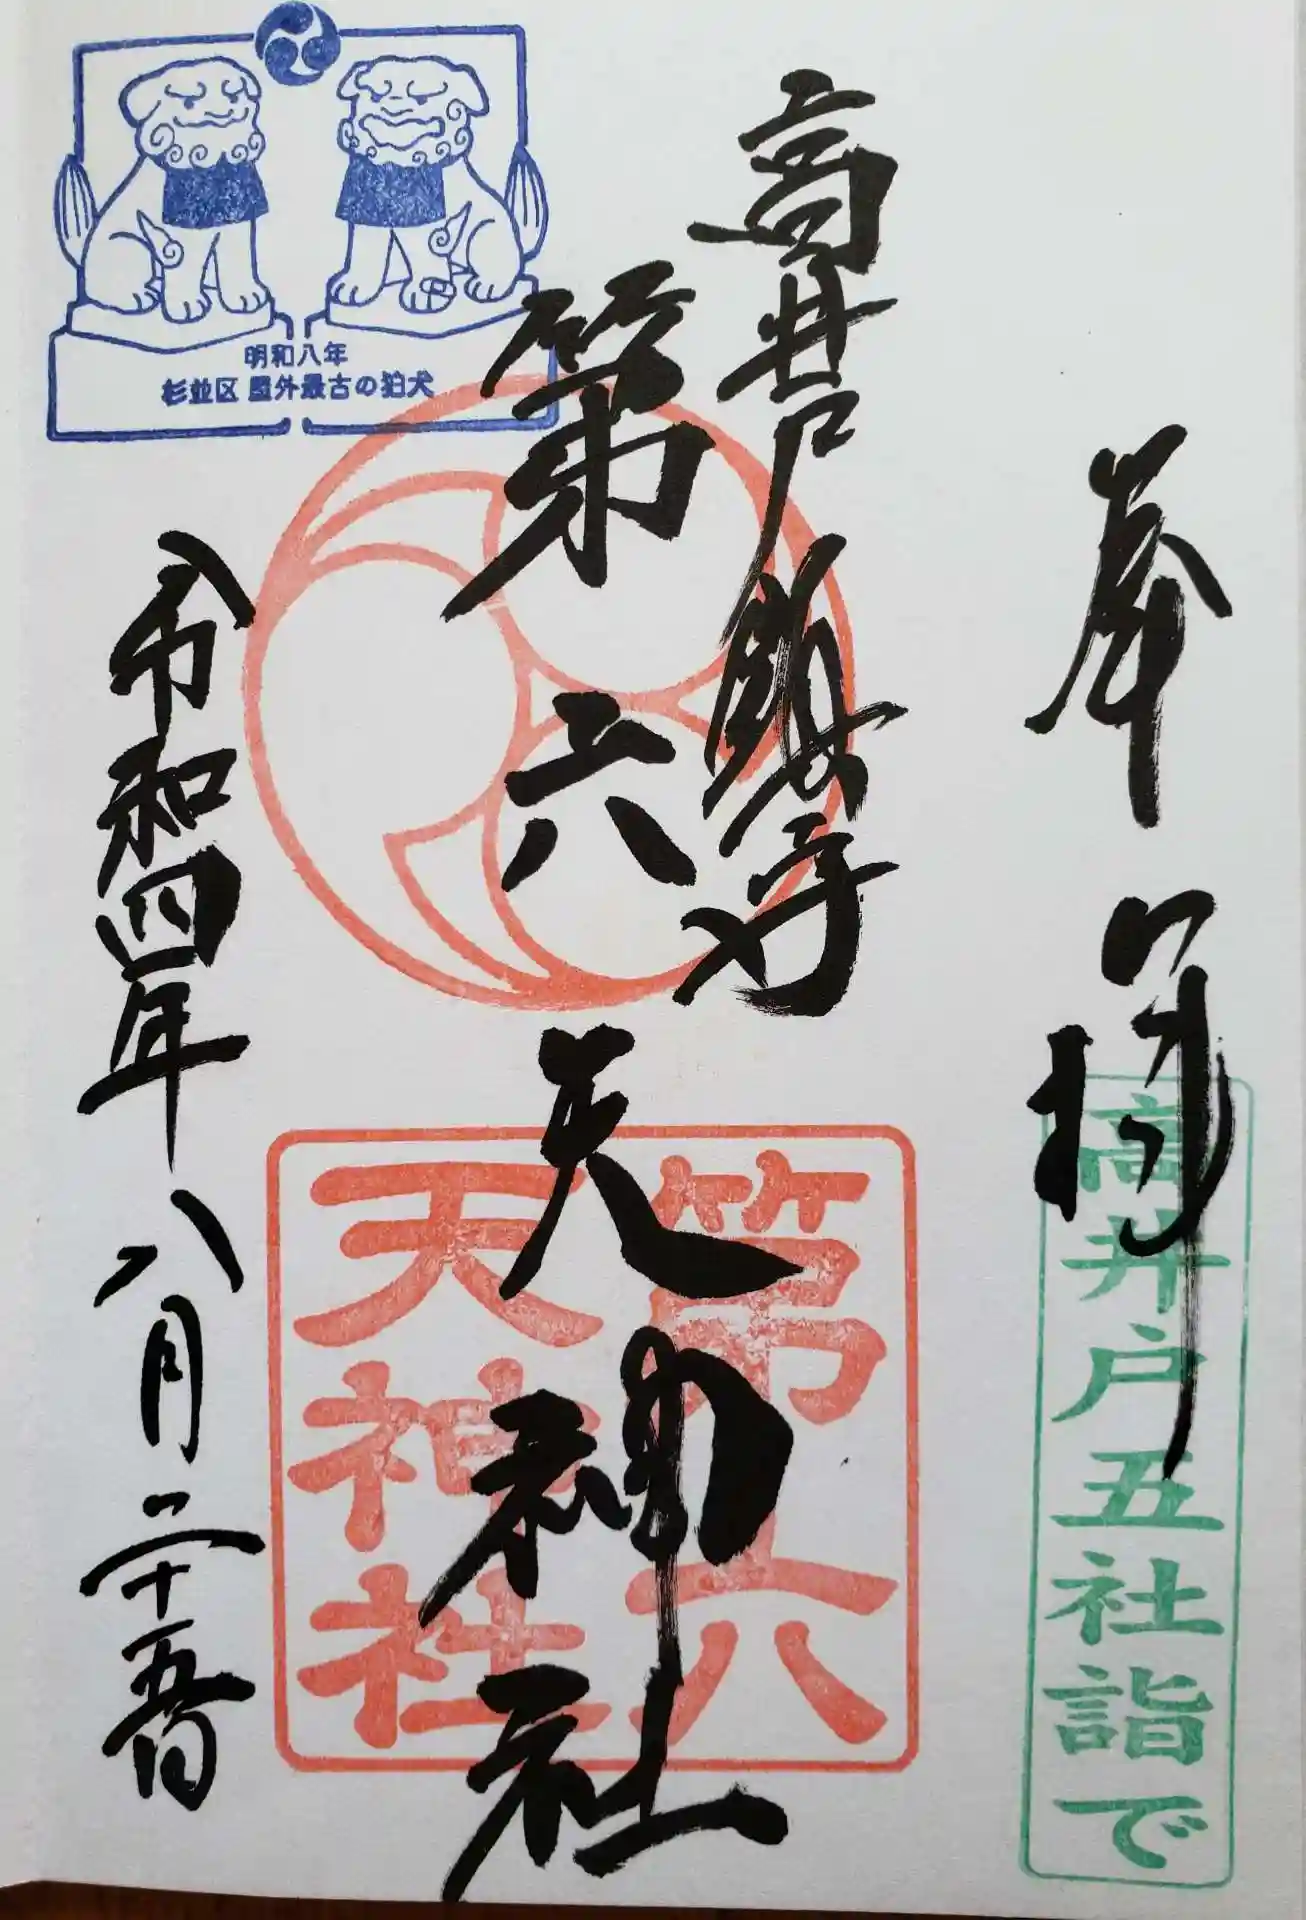 奉拝
高井戸五社詣で
高井戸鎮守
第六天神社
第六
天神社
明和八年
杉並区 屋外最古の狛犬
令和四年八月二十五日